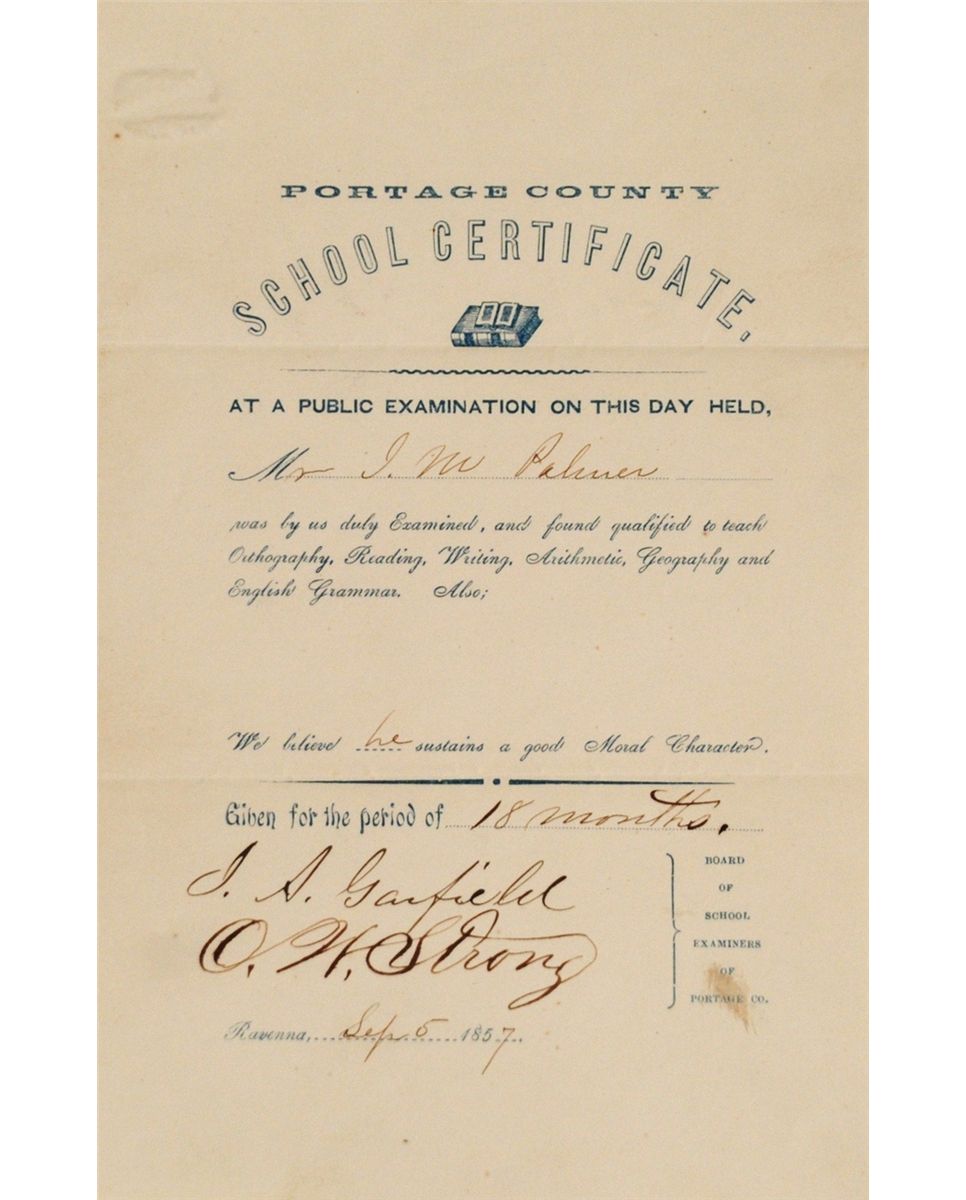 PORTAGE COUNTY
SCHOOL CERTIFICATE,
AT A PUBLIC EXAMINATION ON THIS DAY HELD,
Mr I. M Palmer
was by us duly Examined, and found qualified to teach
Orthography, Reading, Writing, Arithmetic, Geography and
English Grammar. Also;
We believe he sustains a good Moral Character.
Given for the period of 18 months.
J. A. Garfield
O. W. Strong
BOARD
OF
SCHOOL
EXAMINERS
OF
PORTAGE CO.
Ravenna, Sep 5 1857.